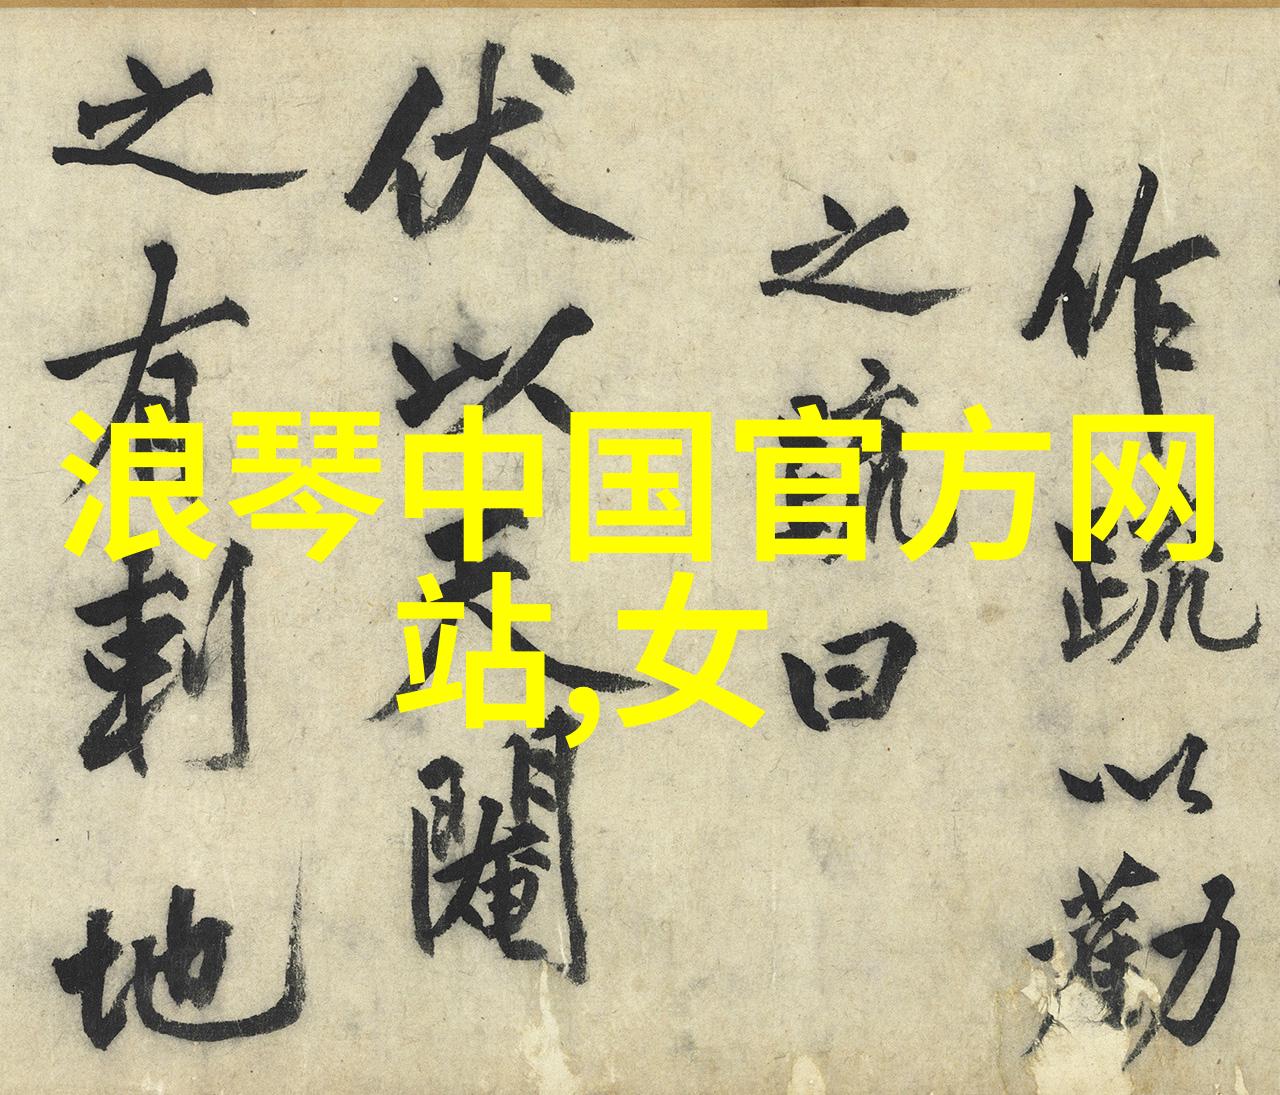 浪琴中国官方网
站,女
作疏以勸
之疏曰
伏以天閹
之有刺地